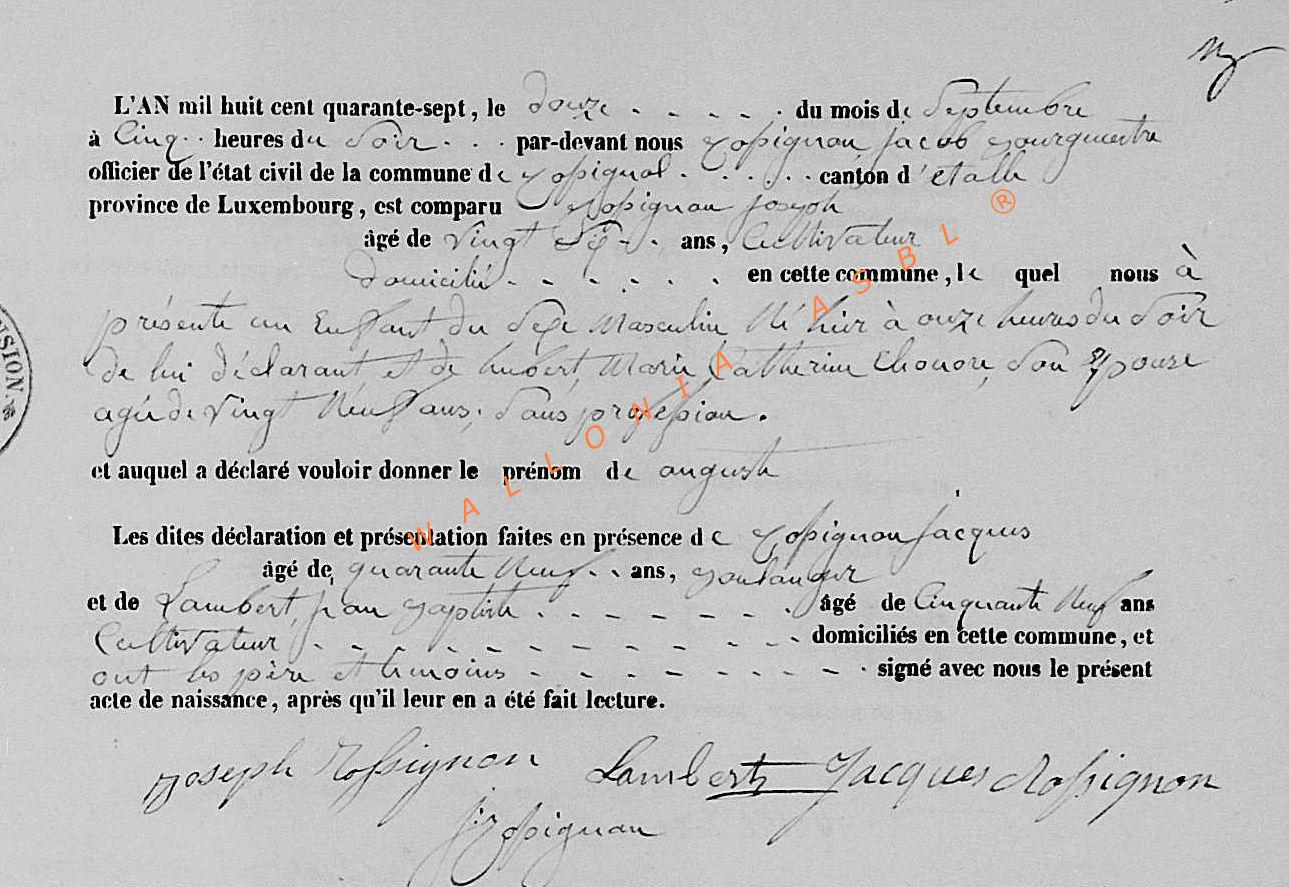 L'AN mil huit cent quarante-sept, le douze - - - - . du mois de Septembre
à Cinq . . heures du Soir . . . par-devant nous Rossignon, jacob Bourguestre
officier de l'état civil de la commune de Rossignol . . . . . . canton d'étalle
province de Luxembourg, est comparu Rossignon joseph
âgé de vingt Six - . ans, Cultivateur
domicilié - - - - - . . en cette commune, le quel nous à
présenté un Enfant du Sexe Masculin Né hier à onze heures du Soir
de lui déclarant, et de hubert, Marie Catherine Elonore, Son Epouse
agée de vingt Neuf ans, Sans profession.
et auquel a déclaré vouloir donner le prénom de auguste
Les dites déclaration et présentation faites en présence de Rossignon jacques
âgé de quarante Neuf - . ans, Boulanger
et de Lambert, jean Baptiste . - - - - - - . âgé de Cinquante Neuf ans
Cultivateur - - - - - - - - - - - . domiciliés en cette commune, et
ont les père et témoins - - - - - - - - - . signé avec nous le présent
acte de naissance, après qu'il leur en a été fait lecture.
Joseph Rossignon Lambert Jacques Rossignon
j: Rossignon
NSION.
WALLONIA ASBL ®